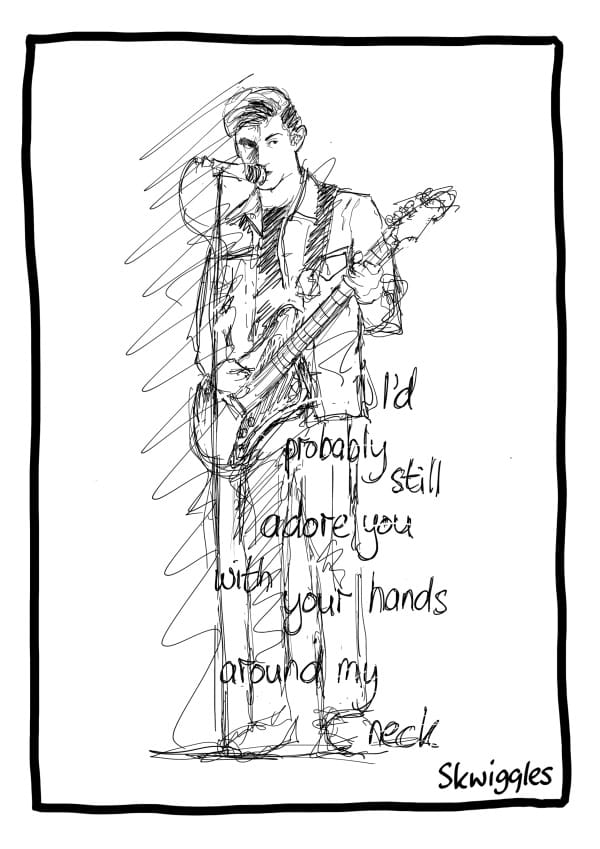 I'd
probably
still
adore you
with
your hands
around my
neck.
Skwiggles